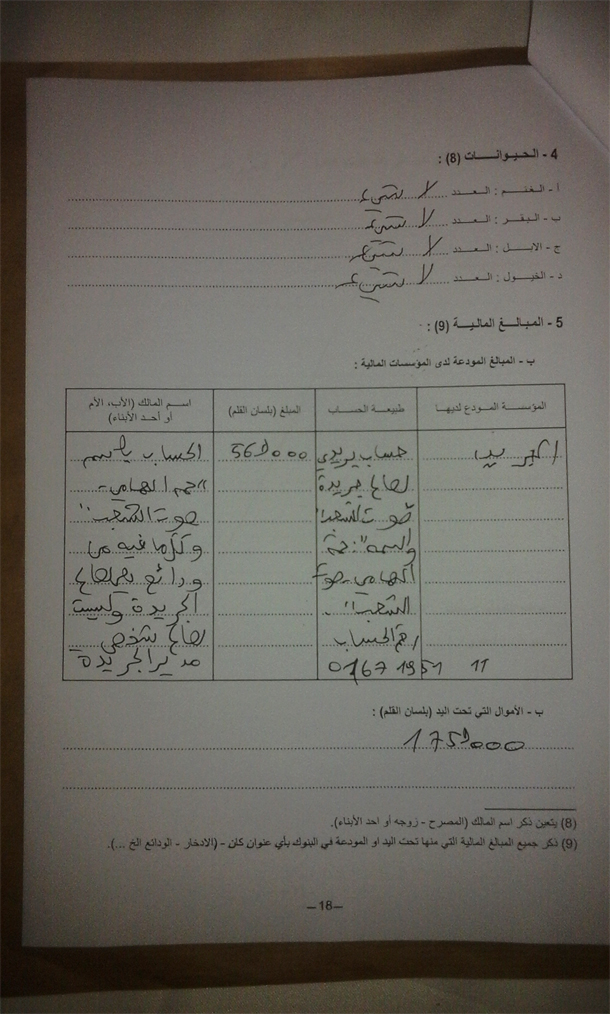 4 - الحيوانات (8) :
أ - الغنم : العدد لا شيء
ب - البقر : العدد لا شيء
ج - الابل : العدد لا شيء
د - الخيول : العدد لا شيء
5 - المبالغ المالية (9) :
ب - المبالغ المودعة لدى المؤسسات المالية :
المؤسسة المودع لديها
طبيعة الحساب
المبلغ (بلسان القلم)
اسم المالك (الأب، الأم
أو أحد الأبناء)
البريد
حساب بريدي
لصالح جريدة
"صوت الشعب"
واسمه: "حمة
الهامي - صوت
الشعب".
رقم الحساب
0167 1951 11
56d000
الحساب باسم
"حمه الهامي -
صوت الشعب"
وكل ما فيه من
ودائع هي لصالح
الجريدة وليست
لصالح شخص
مدير الجريدة
ب - الأموال التي تحت اليد (بلسان القلم) :
175d000
(8) يتعين ذكر اسم المالك (المصرح - زوجه أو احد الأبناء).
(9) ذكر جميع المبالغ المالية التي منها تحت اليد او المودعة في البنوك بأي عنوان كان - (الادخار - الودائع الخ ...).
—18—